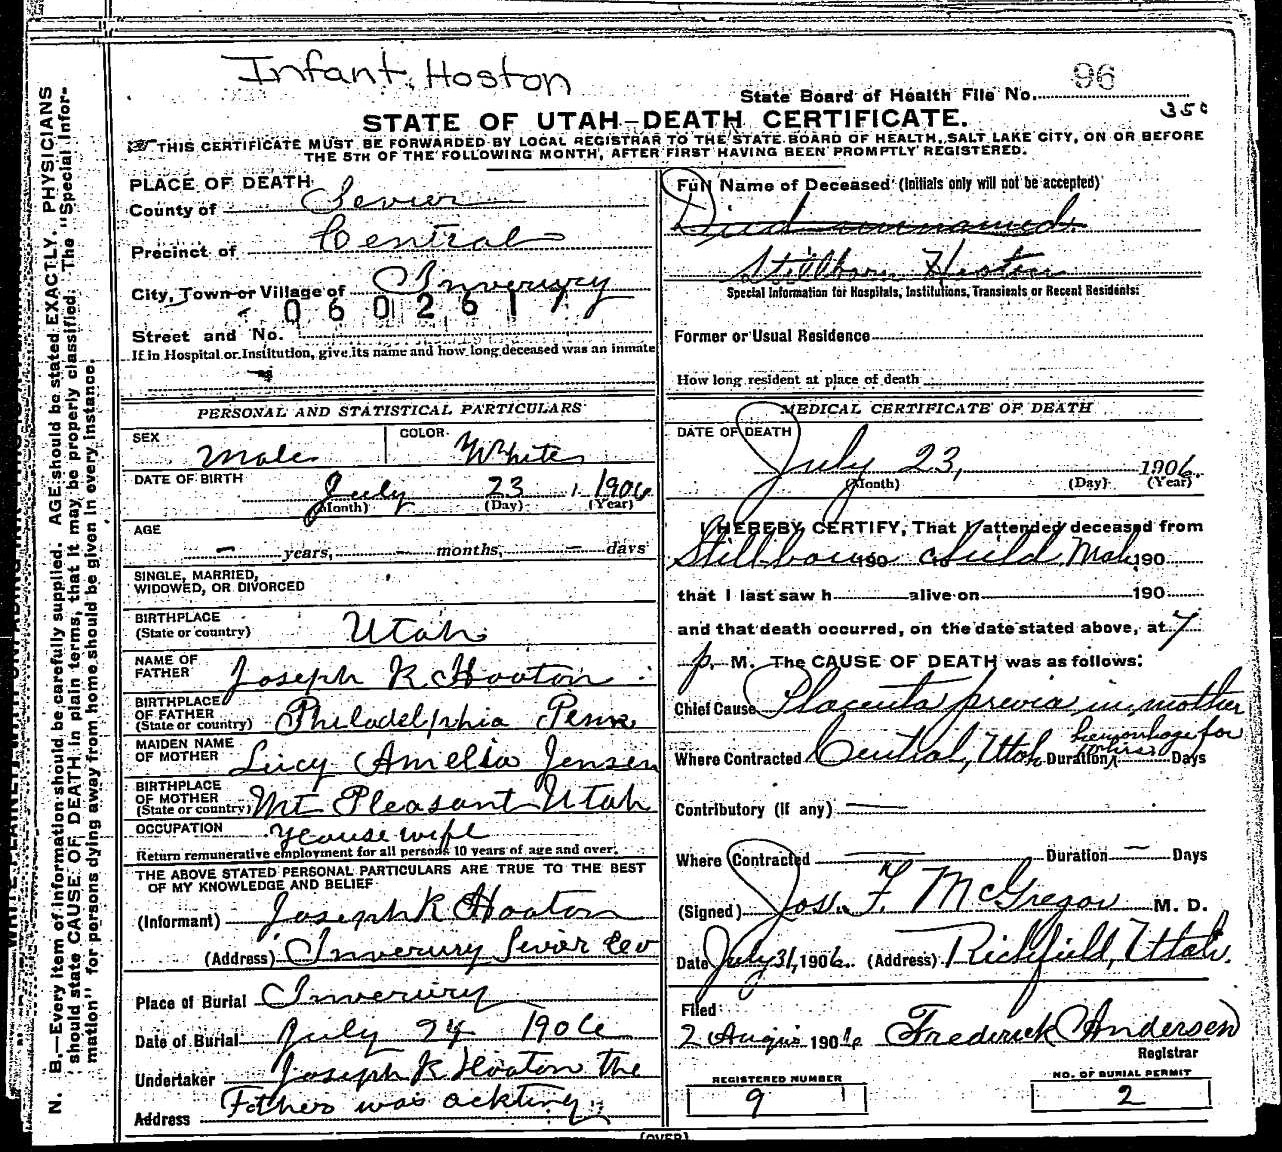 Infant Hooton
State Board of Health File No. 96
350
STATE OF UTAH-DEATH CERTIFICATE.
THIS CERTIFICATE MUST BE FORWARDED BY LOCAL REGISTRAR TO THE STATE BOARD OF HEALTH, SALT LAKE CITY, ON OR BEFORE
THE 5TH OF THE FOLLOWING MONTH, AFTER FIRST HAVING BEEN PROMPTLY REGISTERED.
PLACE OF DEATH
County of Sevier
Precinct of Central
City, Town or Village of Inverury
0602617
Street and No.
If in Hospital or Institution, give its name and how long deceased was an inmate
PERSONAL AND STATISTICAL PARTICULARS
SEX Male COLOR White
DATE OF BIRTH July 23, 1906
(Month) (Day) (Year)
AGE
- years, - months, - days
SINGLE, MARRIED,
WIDOWED, OR DIVORCED
BIRTHPLACE
(State or country) Utah
NAME OF
FATHER Joseph R Hooton
BIRTHPLACE
OF FATHER
(State or country) Philadelphia Penn
MAIDEN NAME
OF MOTHER Lucy Amelia Jensen
BIRTHPLACE
OF MOTHER
(State or country) Mt Pleasant Utah
OCCUPATION House wife
Return remunerative employment for all persons 10 years of age and over.
THE ABOVE STATED PERSONAL PARTICULARS ARE TRUE TO THE BEST
OF MY KNOWLEDGE AND BELIEF
(Informant) Joseph R Hooton
(Address) Inverury Sevier Co
Place of Burial Inverury
Date of Burial July 24 1906
Undertaker Joseph R Hooton the
Address Father was ackting
Full Name of Deceased (Initials only will not be accepted)
Died unnamed.
Stillborn Hooton
Special Information for Hospitals, Institutions, Transients or Recent Residents:
Former or Usual Residence
How long resident at place of death
MEDICAL CERTIFICATE OF DEATH
DATE OF DEATH
July 23, 1906
(Month) (Day) (Year)
I HEREBY CERTIFY, That I attended deceased from
Stillborn 190 to child Male, 190
that I last saw h alive on 190
and that death occurred, on the date stated above, at 7
p. M. The CAUSE OF DEATH was as follows:
Chief Cause Placenta previa in mother
hemorrhage for
Where Contracted Central, Utah Duration hours Days
Contributory (if any) —
Where Contracted — Duration — Days
(Signed) Jos. F. McGregor M. D.
Date July 31, 1906. (Address) Richfield, Utah.
Filed
2 Augus 1906 Frederick Andersen
Registrar
REGISTERED NUMBER
9
NO. OF BURIAL PERMIT
2
(OVER)
N. B.—Every item of information should be carefully supplied. AGE should be stated EXACTLY. PHYSICIANS
should state CAUSE OF DEATH in plain terms, that it may be properly classified. The "Special Infor-
mation" for persons dying away from home should be given in every instance.